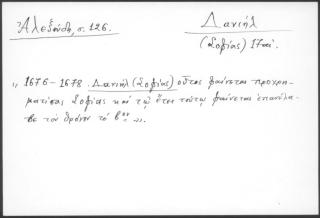 Ἀλεξούδη, σ. 126.
Δανιήλ
(Σοφίας) 17 αἰ.
„ 1676 – 1678. Δανιήλ (Σοφίας) οὗτος φαίνεται προχρη-
ματίσας Σοφίας καὶ τῷ ἔτει τούτῳ φαίνεται ἐπανέλα-
βε τὸν θρόνον τὸ βον „.